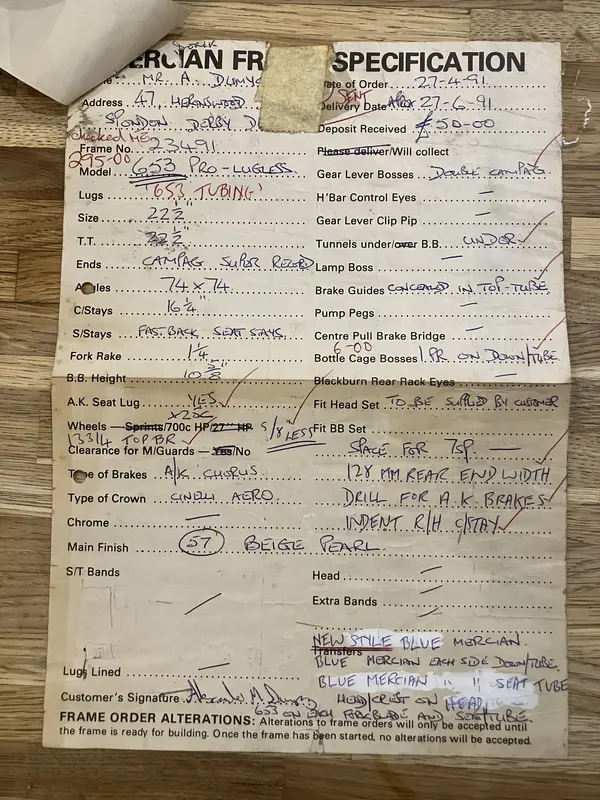 ERCIAN FR SPECIFICATION
MR. A. DUMY
ate of Order 27-4-91
Address 47, HERONSWOOD
SENT
Delivery Date APPX 27-6-91
SPONDON DERBY D
Deposit Received £50-00
checked
Frame No. 23491
Please deliver/Will collect
295-00
Model 653 PRO-LUGLESS
Gear Lever Bosses DOUBLE CAMPAG
Lugs '653 TUBING'
H'Bar Control Eyes —
Size 22½
Gear Lever Clip Pip —
T.T. 22½"
Tunnels under/over B.B. UNDER
Ends CAMPAG SUPER RECORD
Lamp Boss —
Angles 74 x 74
Brake Guides CONCEALED IN TOP-TUBE
C/Stays 16¼"
Pump Pegs —
S/Stays FASTBACK SEAT STAYS
Centre Pull Brake Bridge —
Fork Rake 1¼
6-00
Bottle Cage Bosses 1 PR ON DOWN/TUBE
B.B. Height 10⅜
Blackburn Rear Rack Eyes —
A.K. Seat Lug YES
Fit Head Set TO BE SUPPLIED BY CUSTOMER
x20c
Wheels — Sprints/700c HP/27" HP 5/8 LESS
Fit BB Set
13 3/4 TOP BR
Clearance for M/Guards — Yes/No
SPACE FOR 7SP. —
Type of Brakes A/K CHORUS
128 MM REAR END WIDTH
Type of Crown CINELLI AERO
DRILL FOR A.K. BRAKES
Chrome —
INDENT R/H C/STAY
Main Finish 57 BEIGE PEARL
S/T Bands
Head —
Extra Bands —
NEW STYLE BLUE MERCIAN
Transfers
BLUE MERCIAN EACH SIDE DOWN/TUBE.
Lugs Lined —
BLUE MERCIAN " " SEAT TUBE
Customer's Signature
HEAD/CREST ON HEAD
653 ON EACH FORKBLADE AND SEAT/TUBE.
FRAME ORDER ALTERATIONS: Alterations to frame orders will only be accepted until
the frame is ready for building. Once the frame has been started, no alterations will be accepted.